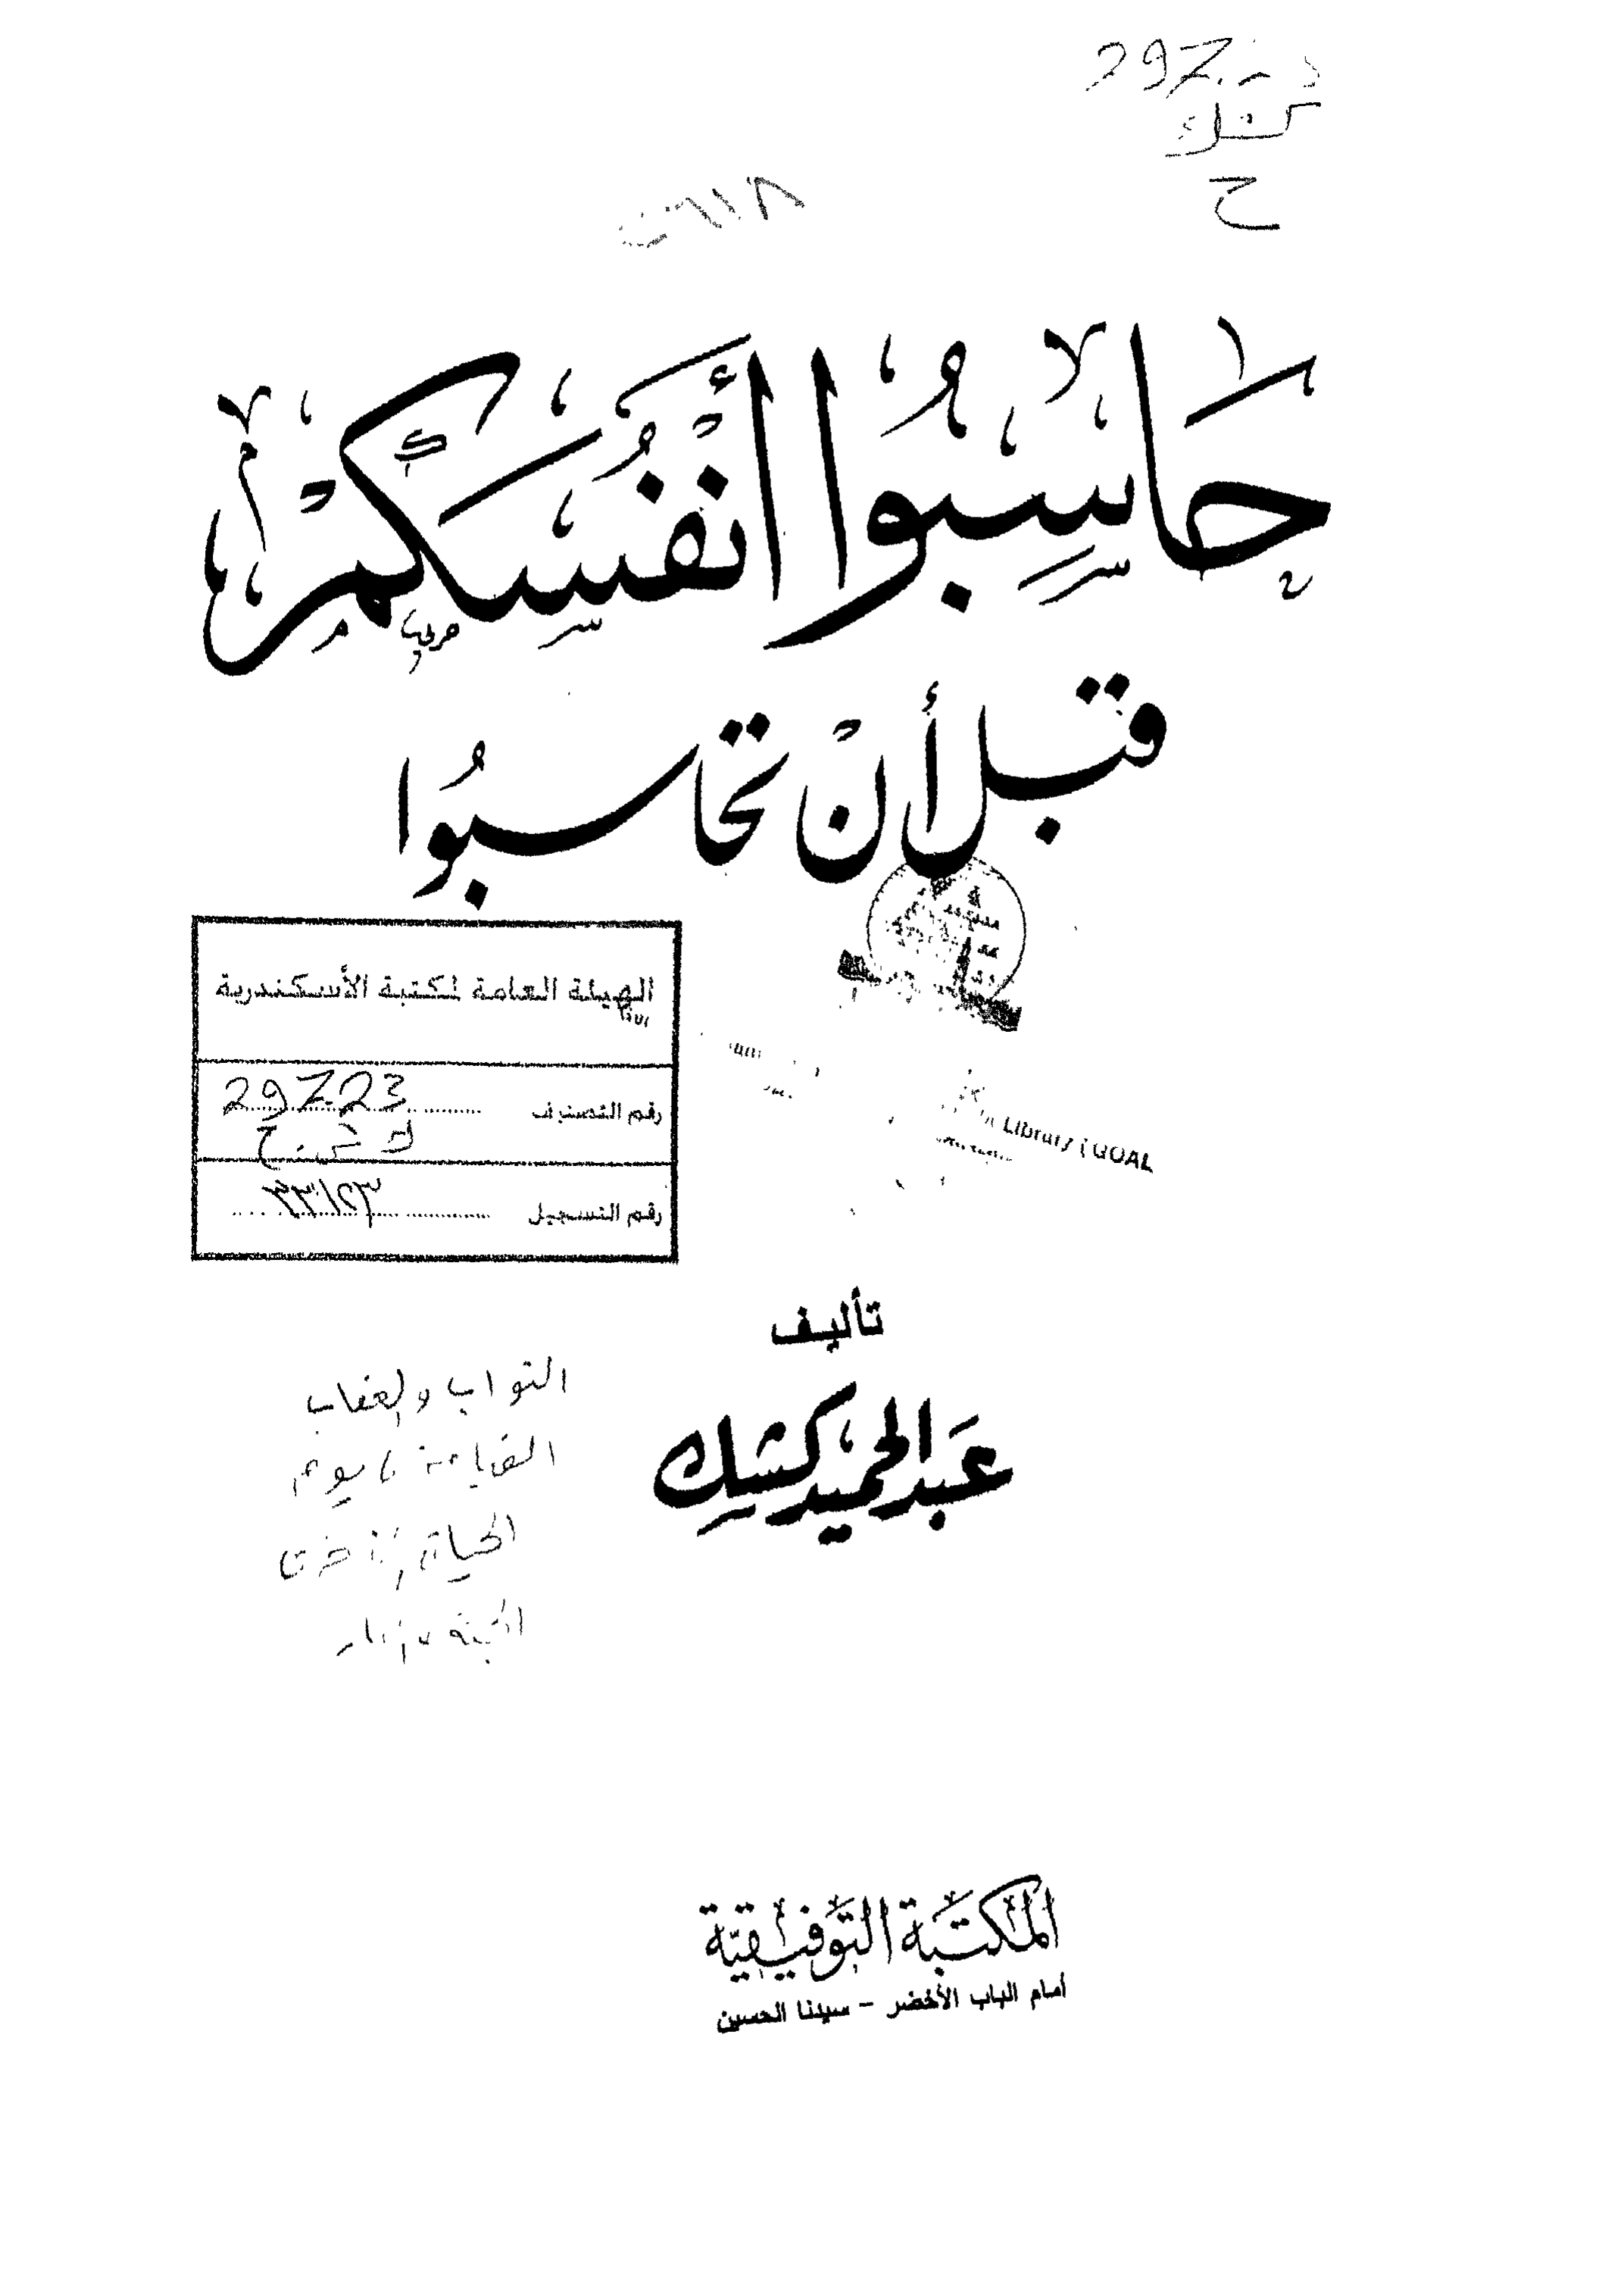 كشك
ح
حَاسِبُوا أنفُسَكُمْ
قبل أنْ تحاسبُوا
الهيئة العامة لمكتبة الأسكندرية
رقم التصنيف 297.23
ك ش. ح
رقم التسجيل
Library (GOAL
تأليف
عَبد الحميد كشك
الثواب والعقاب
القيامة، يوم
الحياة الأخرى
الجنة والنار
المكتَبة التَوفيقيَّة
أمام الباب الأخضر – سيدنا الحسين